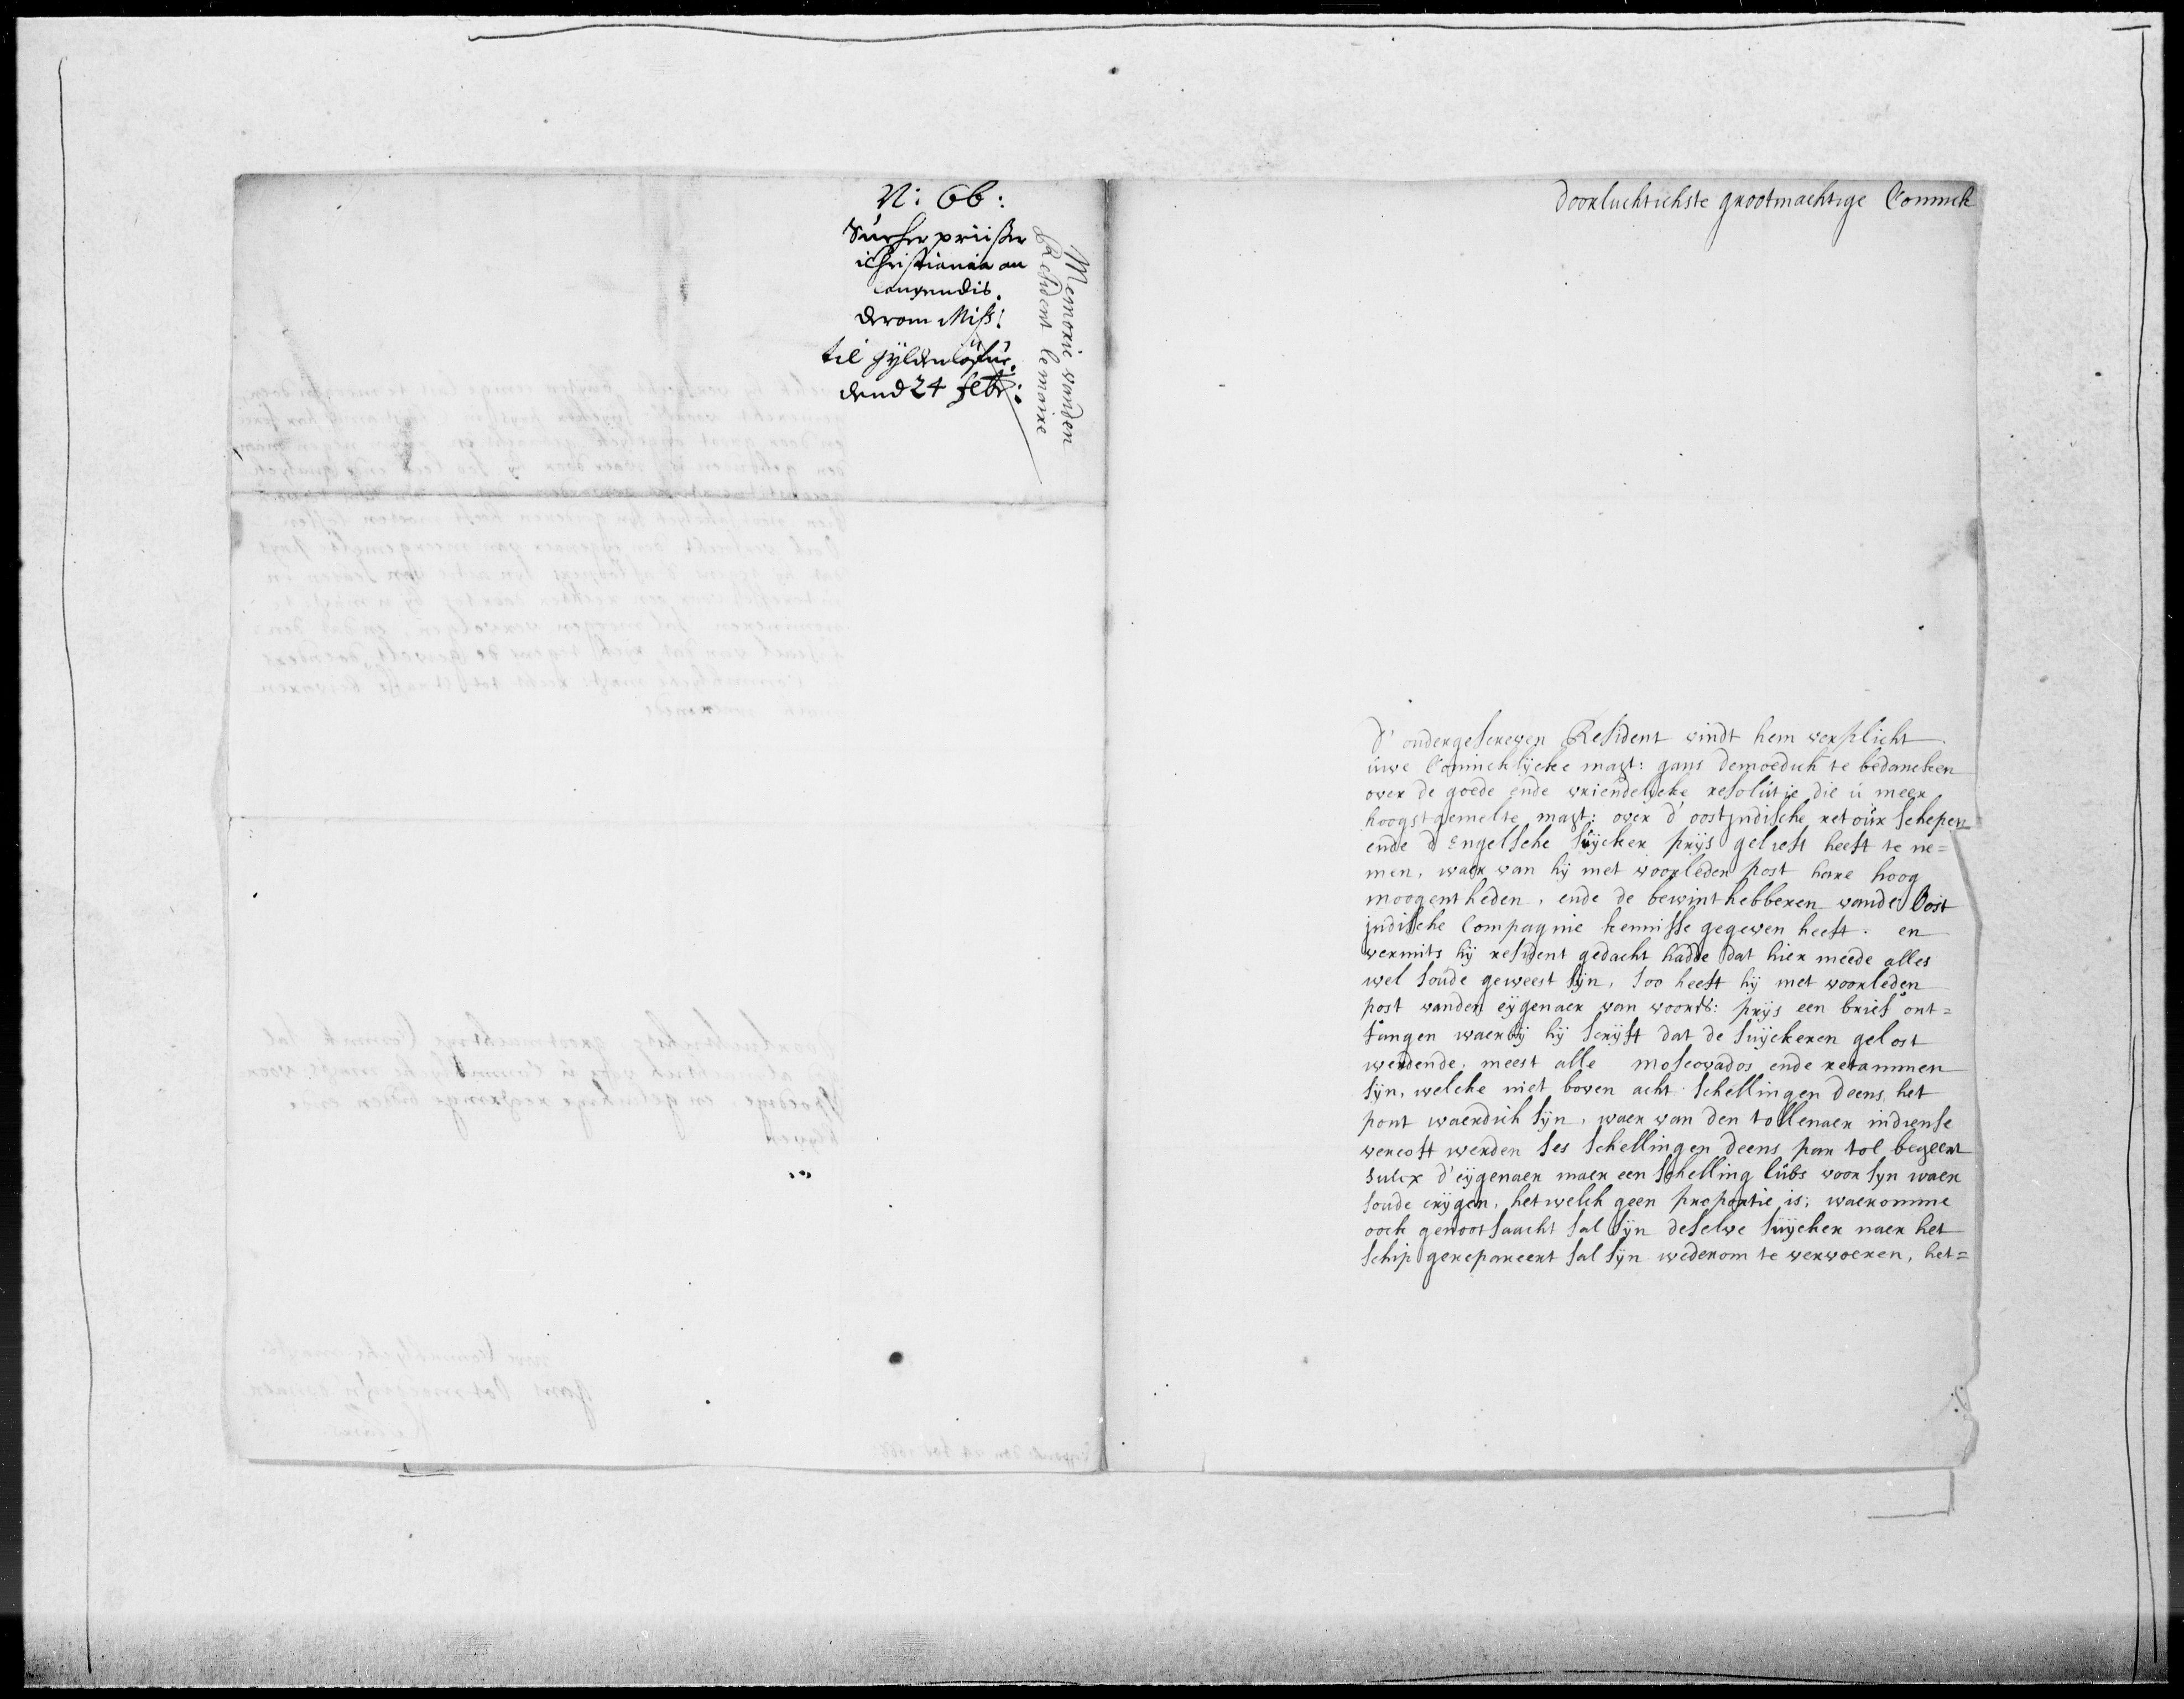 N: 66:
Surker priiser
i Christiania an
langendis.
derom Miss:
til Gyldenløfue.
dend 24 Feb:
Memorie vanden
Resident le maire
Doorluchtichste grootmachtige Coninck
D' ondergescreven Resident vindt hem verplicht
uwe Conincklijcke mayt: gans demoedich te bedancken
over de goede ende vriendelycke resolutie die u meer
hoogstgemelte mayt: over d' oostjndische retour schepen
ende d' Engelsche suycker prijs gelieft heeft te ne=
men, waer van hij met voorleden post hare hoog
moogentheden, ende de bewinthebberen vande Oost
jndische Compagnie kennisse gegeven heeft. en
vermits hij resident gedacht hadde dat hier meede alles
wel soude geweest sijn, soo heeft hij met voorleden
post vanden eijgenaer van voors: prijs een brief ont=
fangen waerbij hij scrijft dat de suijckeren gelost
werdende, meest alle moscovados ende retammen
sijn, welcke niet boven acht schellingen deens, het
pont waerdich sijn, waer van den tollenaer indiense
vercoft werden ses schellingen deens pan tol begeert
sulcx d' eijgenaer maer een schelling lubs voor syn waer
soude crijgen, het welck geen proportie is; waeromme
oock genootsaackt sal sijn deselve suijcker naer het
schip gerepareert sal sijn wederom te vervoeren, het=